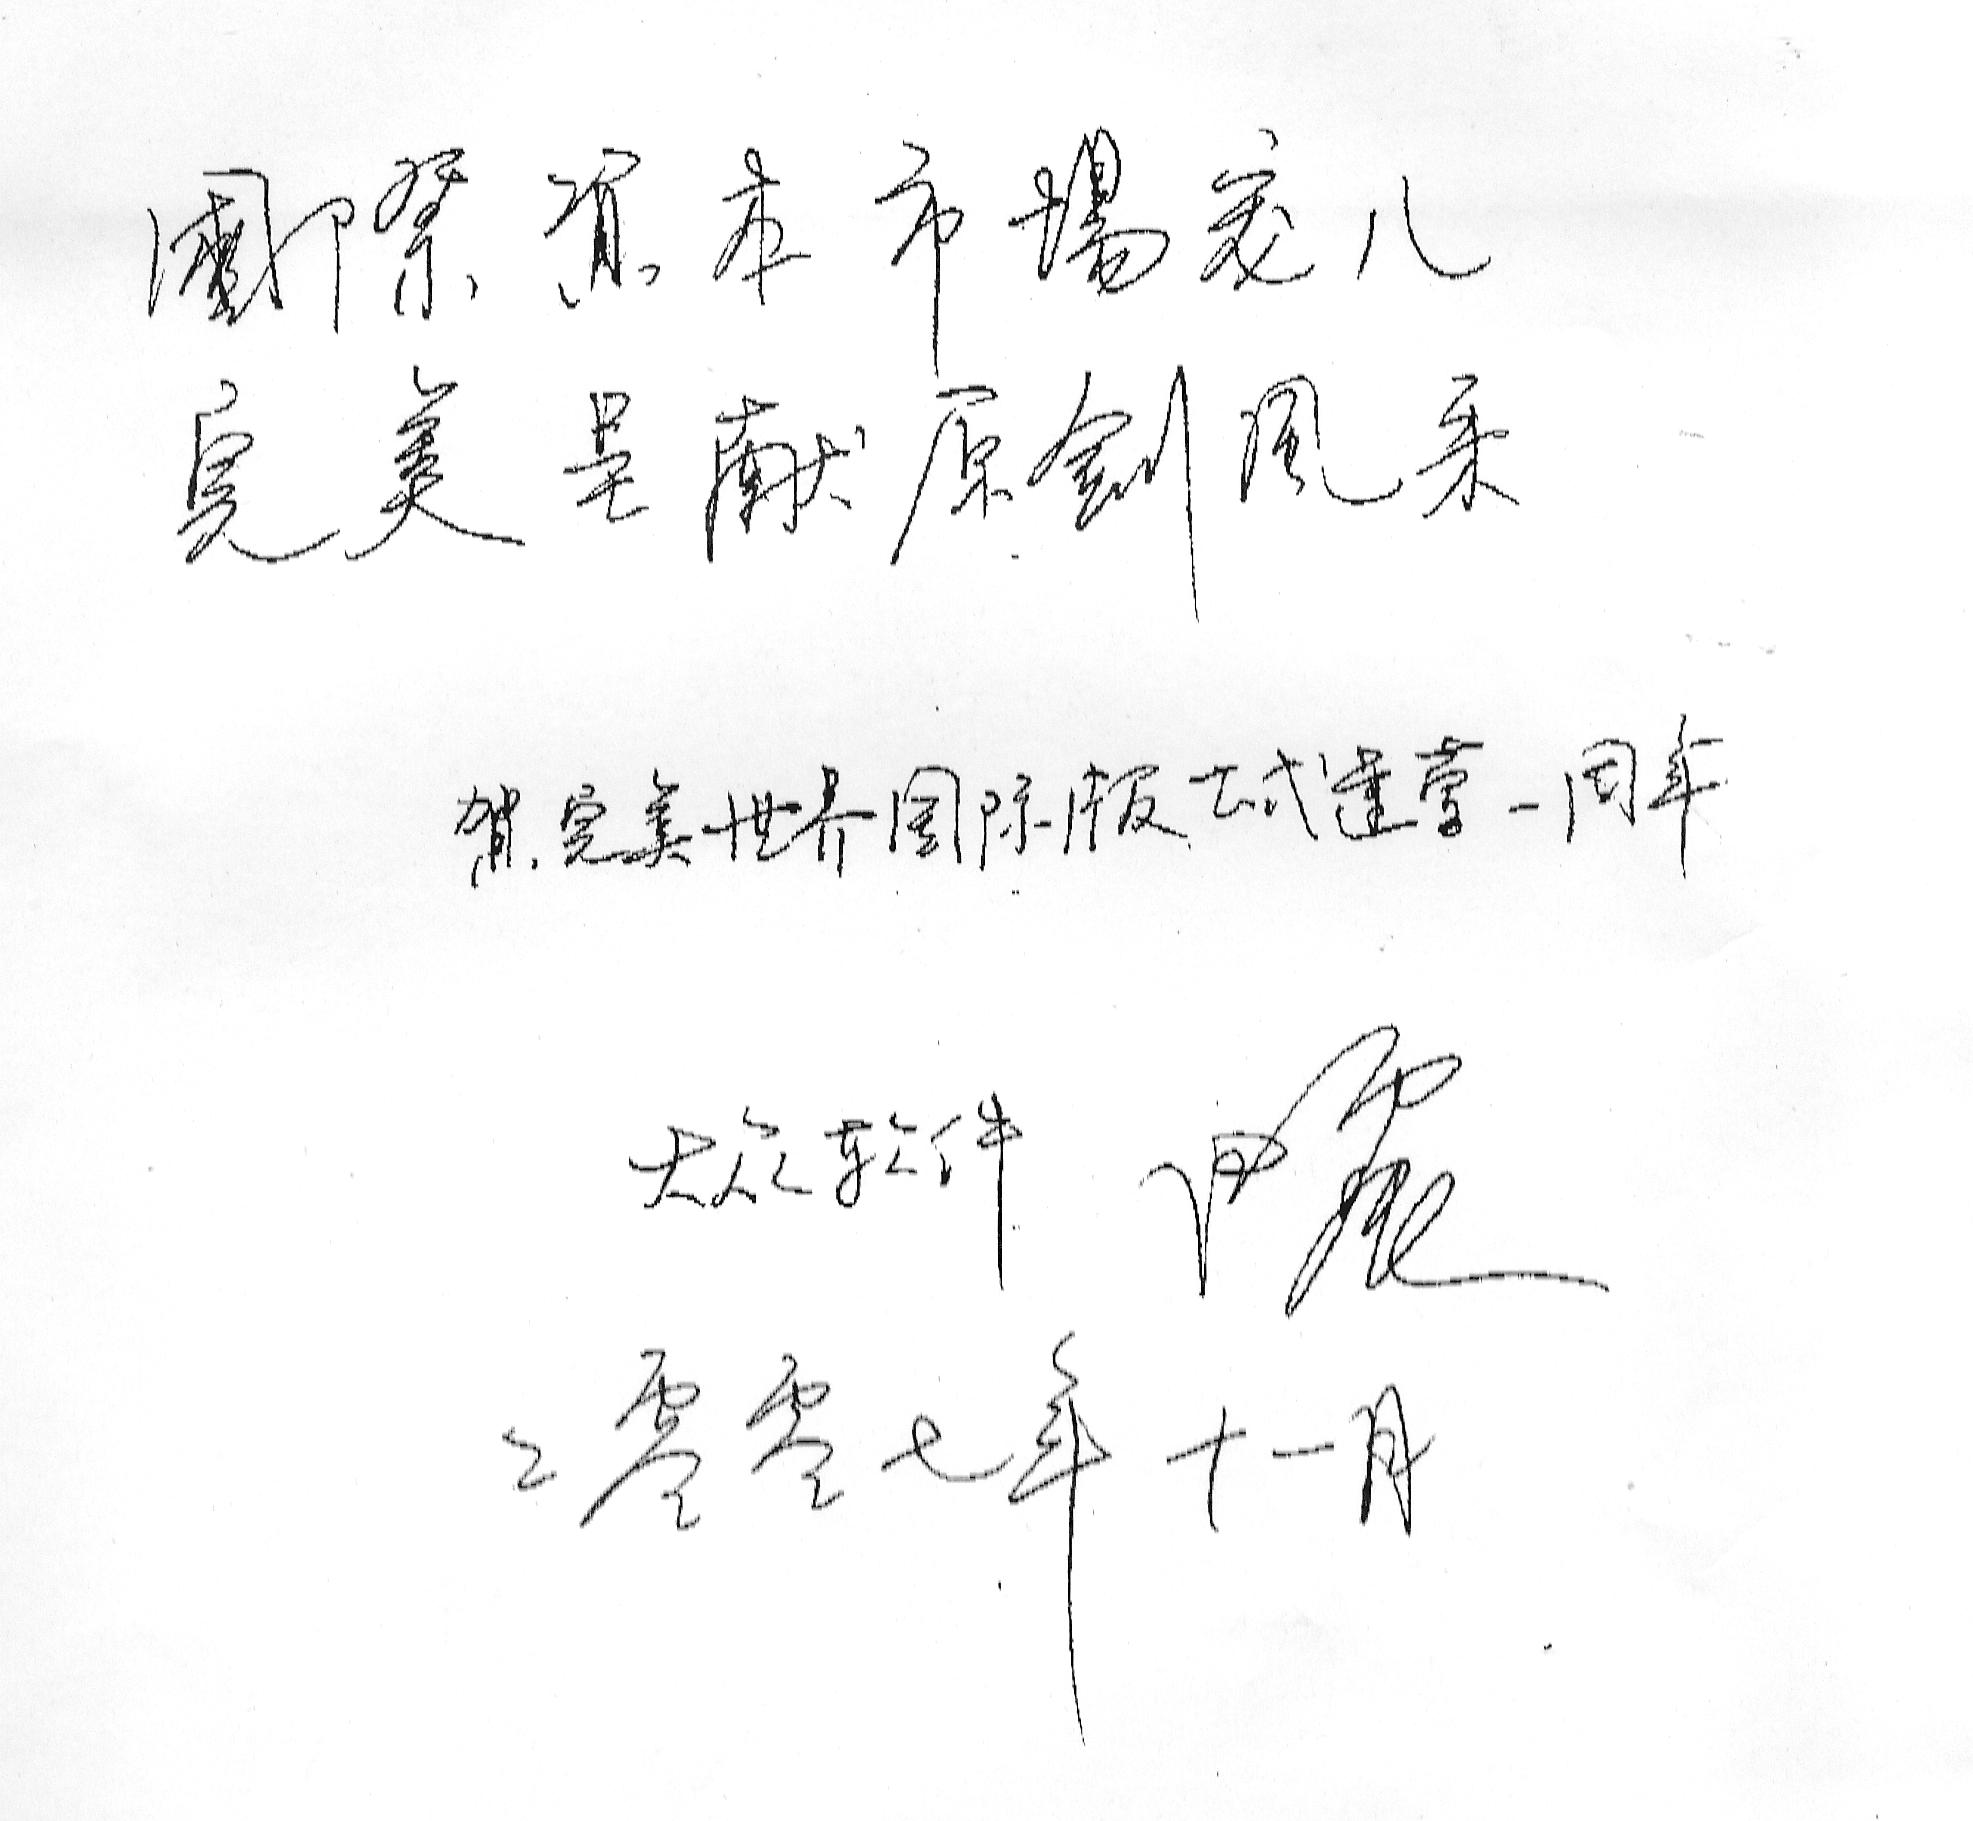 國際資本市場寵儿
完美呈献原創风采
贺完美世界国际版正式運营一周年
大众软件
二零零七年十一月